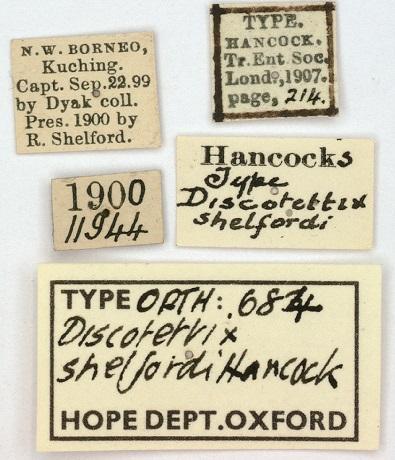 N.W. BORNEO,
Kuching.
Capt. Sep. 22.99
by Dyak coll.
Pres. 1900 by
R. Shelford.
TYPE.
HANCOCK.
Tr. Ent. Soc.
Lond., 1907.
page, 214.
Hancocks
Type
Discotettix
shelfordi
1900
11944
TYPE ORTH: 684
Discotettix
shelfordi Hancock
HOPE DEPT. OXFORD